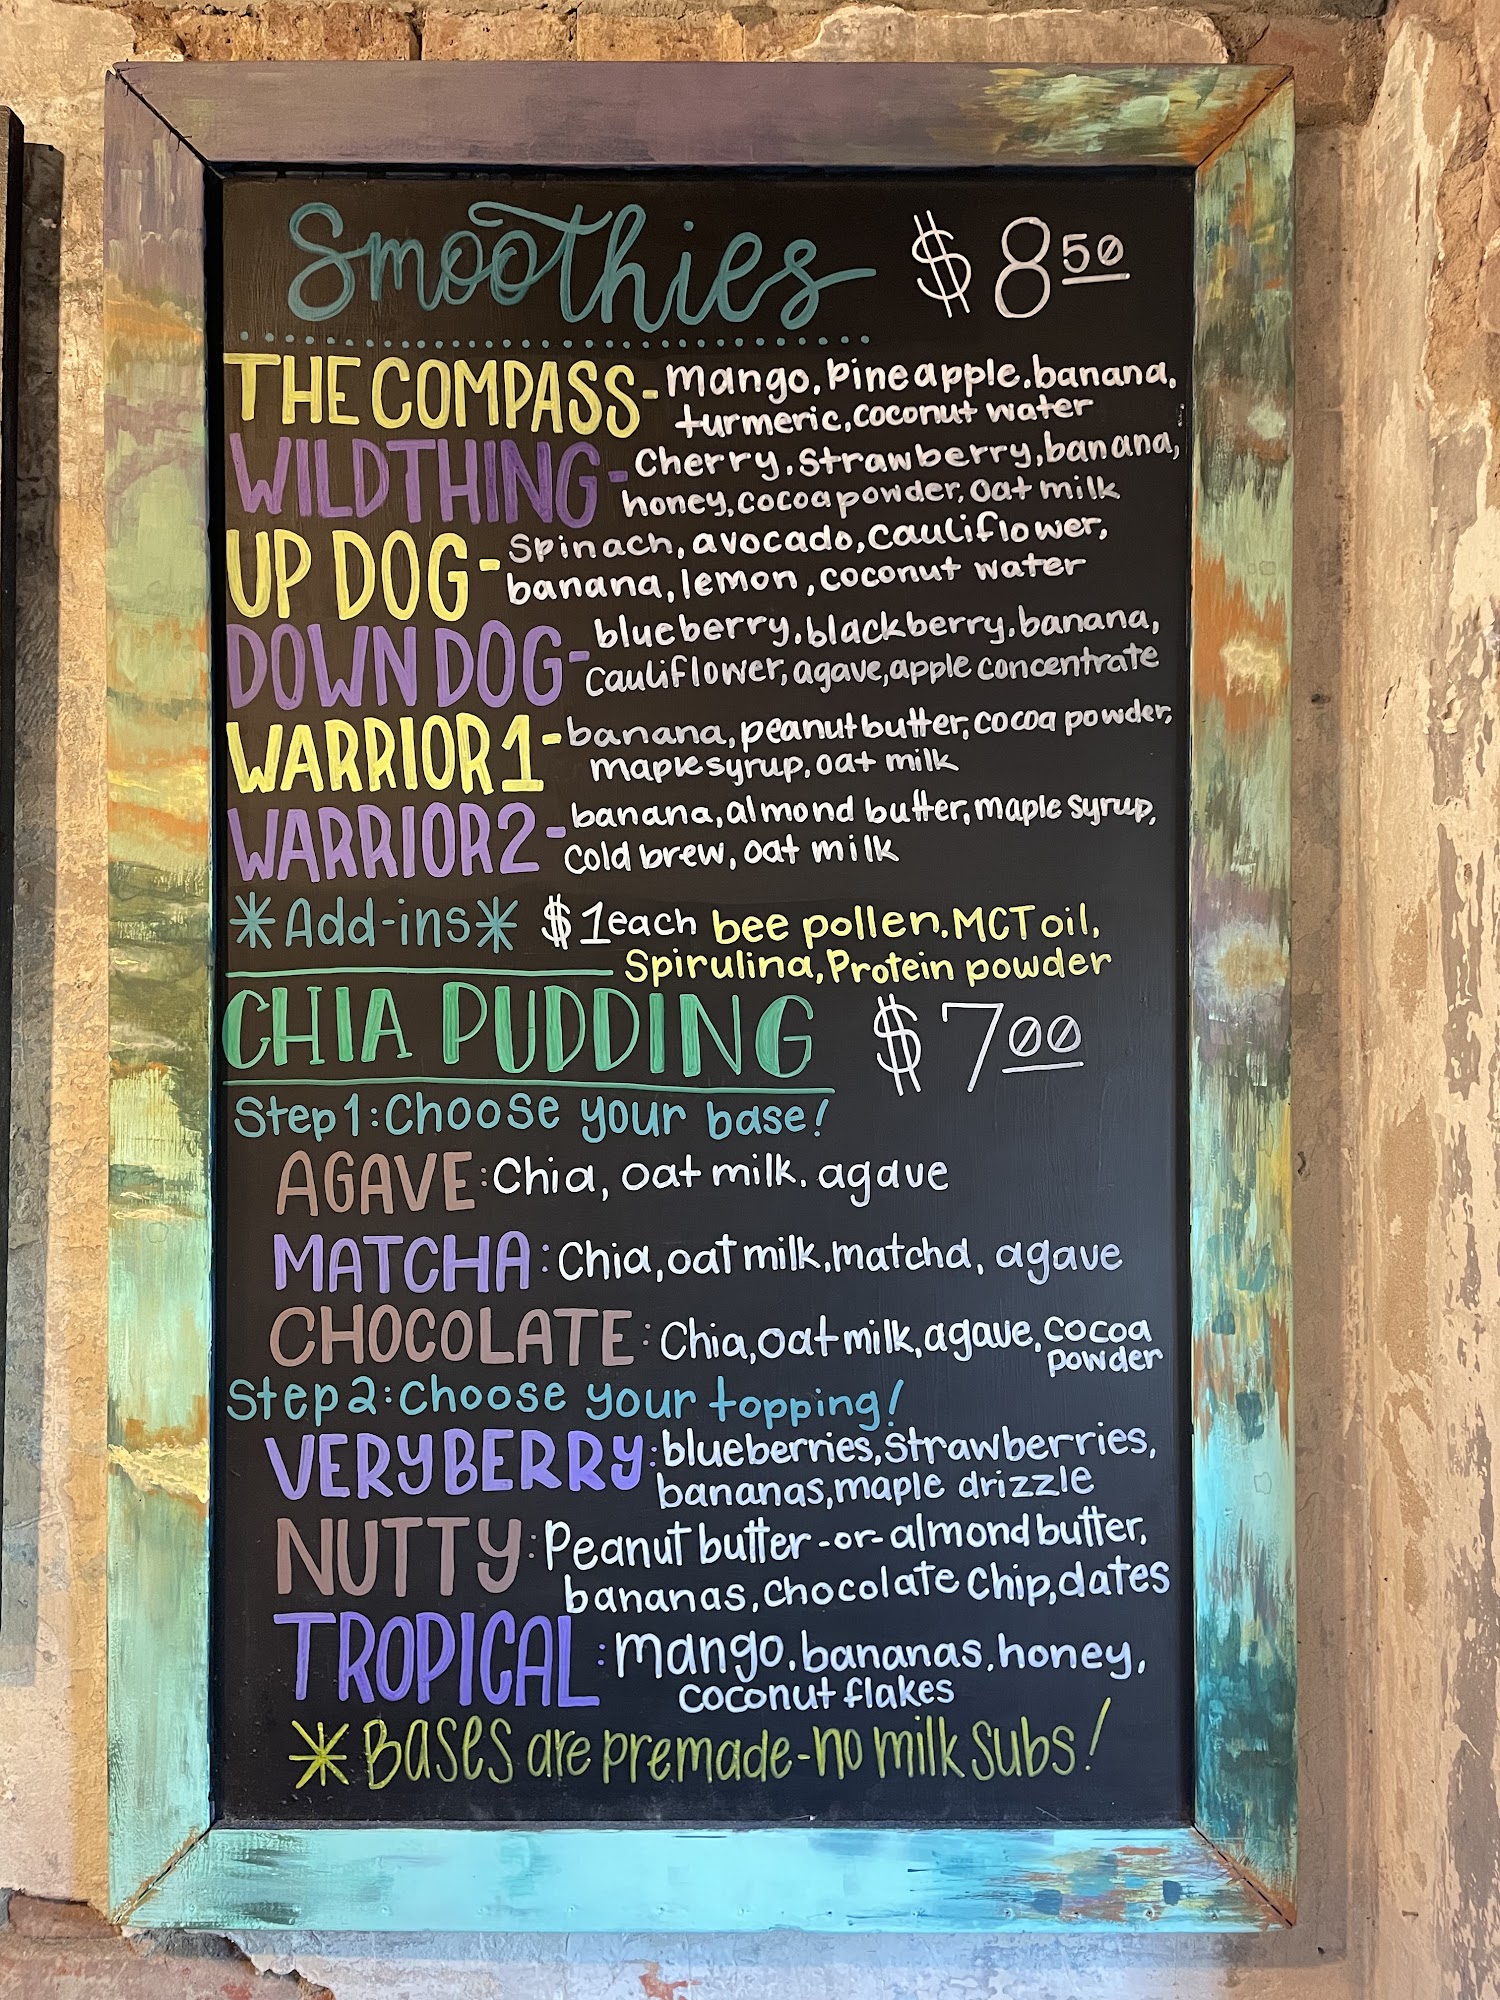 Smoothies $8.50
THE COMPASS - mango, pineapple, banana,
turmeric, coconut water
WILDTHING - Cherry, Strawberry, banana,
honey, cocoa powder, oat milk
UP DOG - Spinach, avocado, cauliflower,
banana, lemon, coconut water
DOWN DOG - blueberry, blackberry, banana,
cauliflower, agave, apple concentrate
WARRIOR 1 - banana, peanut butter, cocoa powder,
maple syrup, oat milk
WARRIOR 2 - banana, almond butter, maple syrup,
cold brew, oat milk
*Add-ins* $1 each bee pollen, MCT oil,
Spirulina, Protein powder
CHIA PUDDING $7.00
Step 1: Choose your base!
AGAVE: Chia, oat milk, agave
MATCHA: Chia, oat milk, matcha, agave
CHOCOLATE: Chia, oat milk, agave, cocoa
powder
Step 2: Choose your topping!
VERY BERRY: blueberries, strawberries,
bananas, maple drizzle
NUTTY: Peanut butter -or- almond butter,
bananas, chocolate chip, dates
TROPICAL: mango, bananas, honey,
coconut flakes
*Bases are premade - no milk subs!